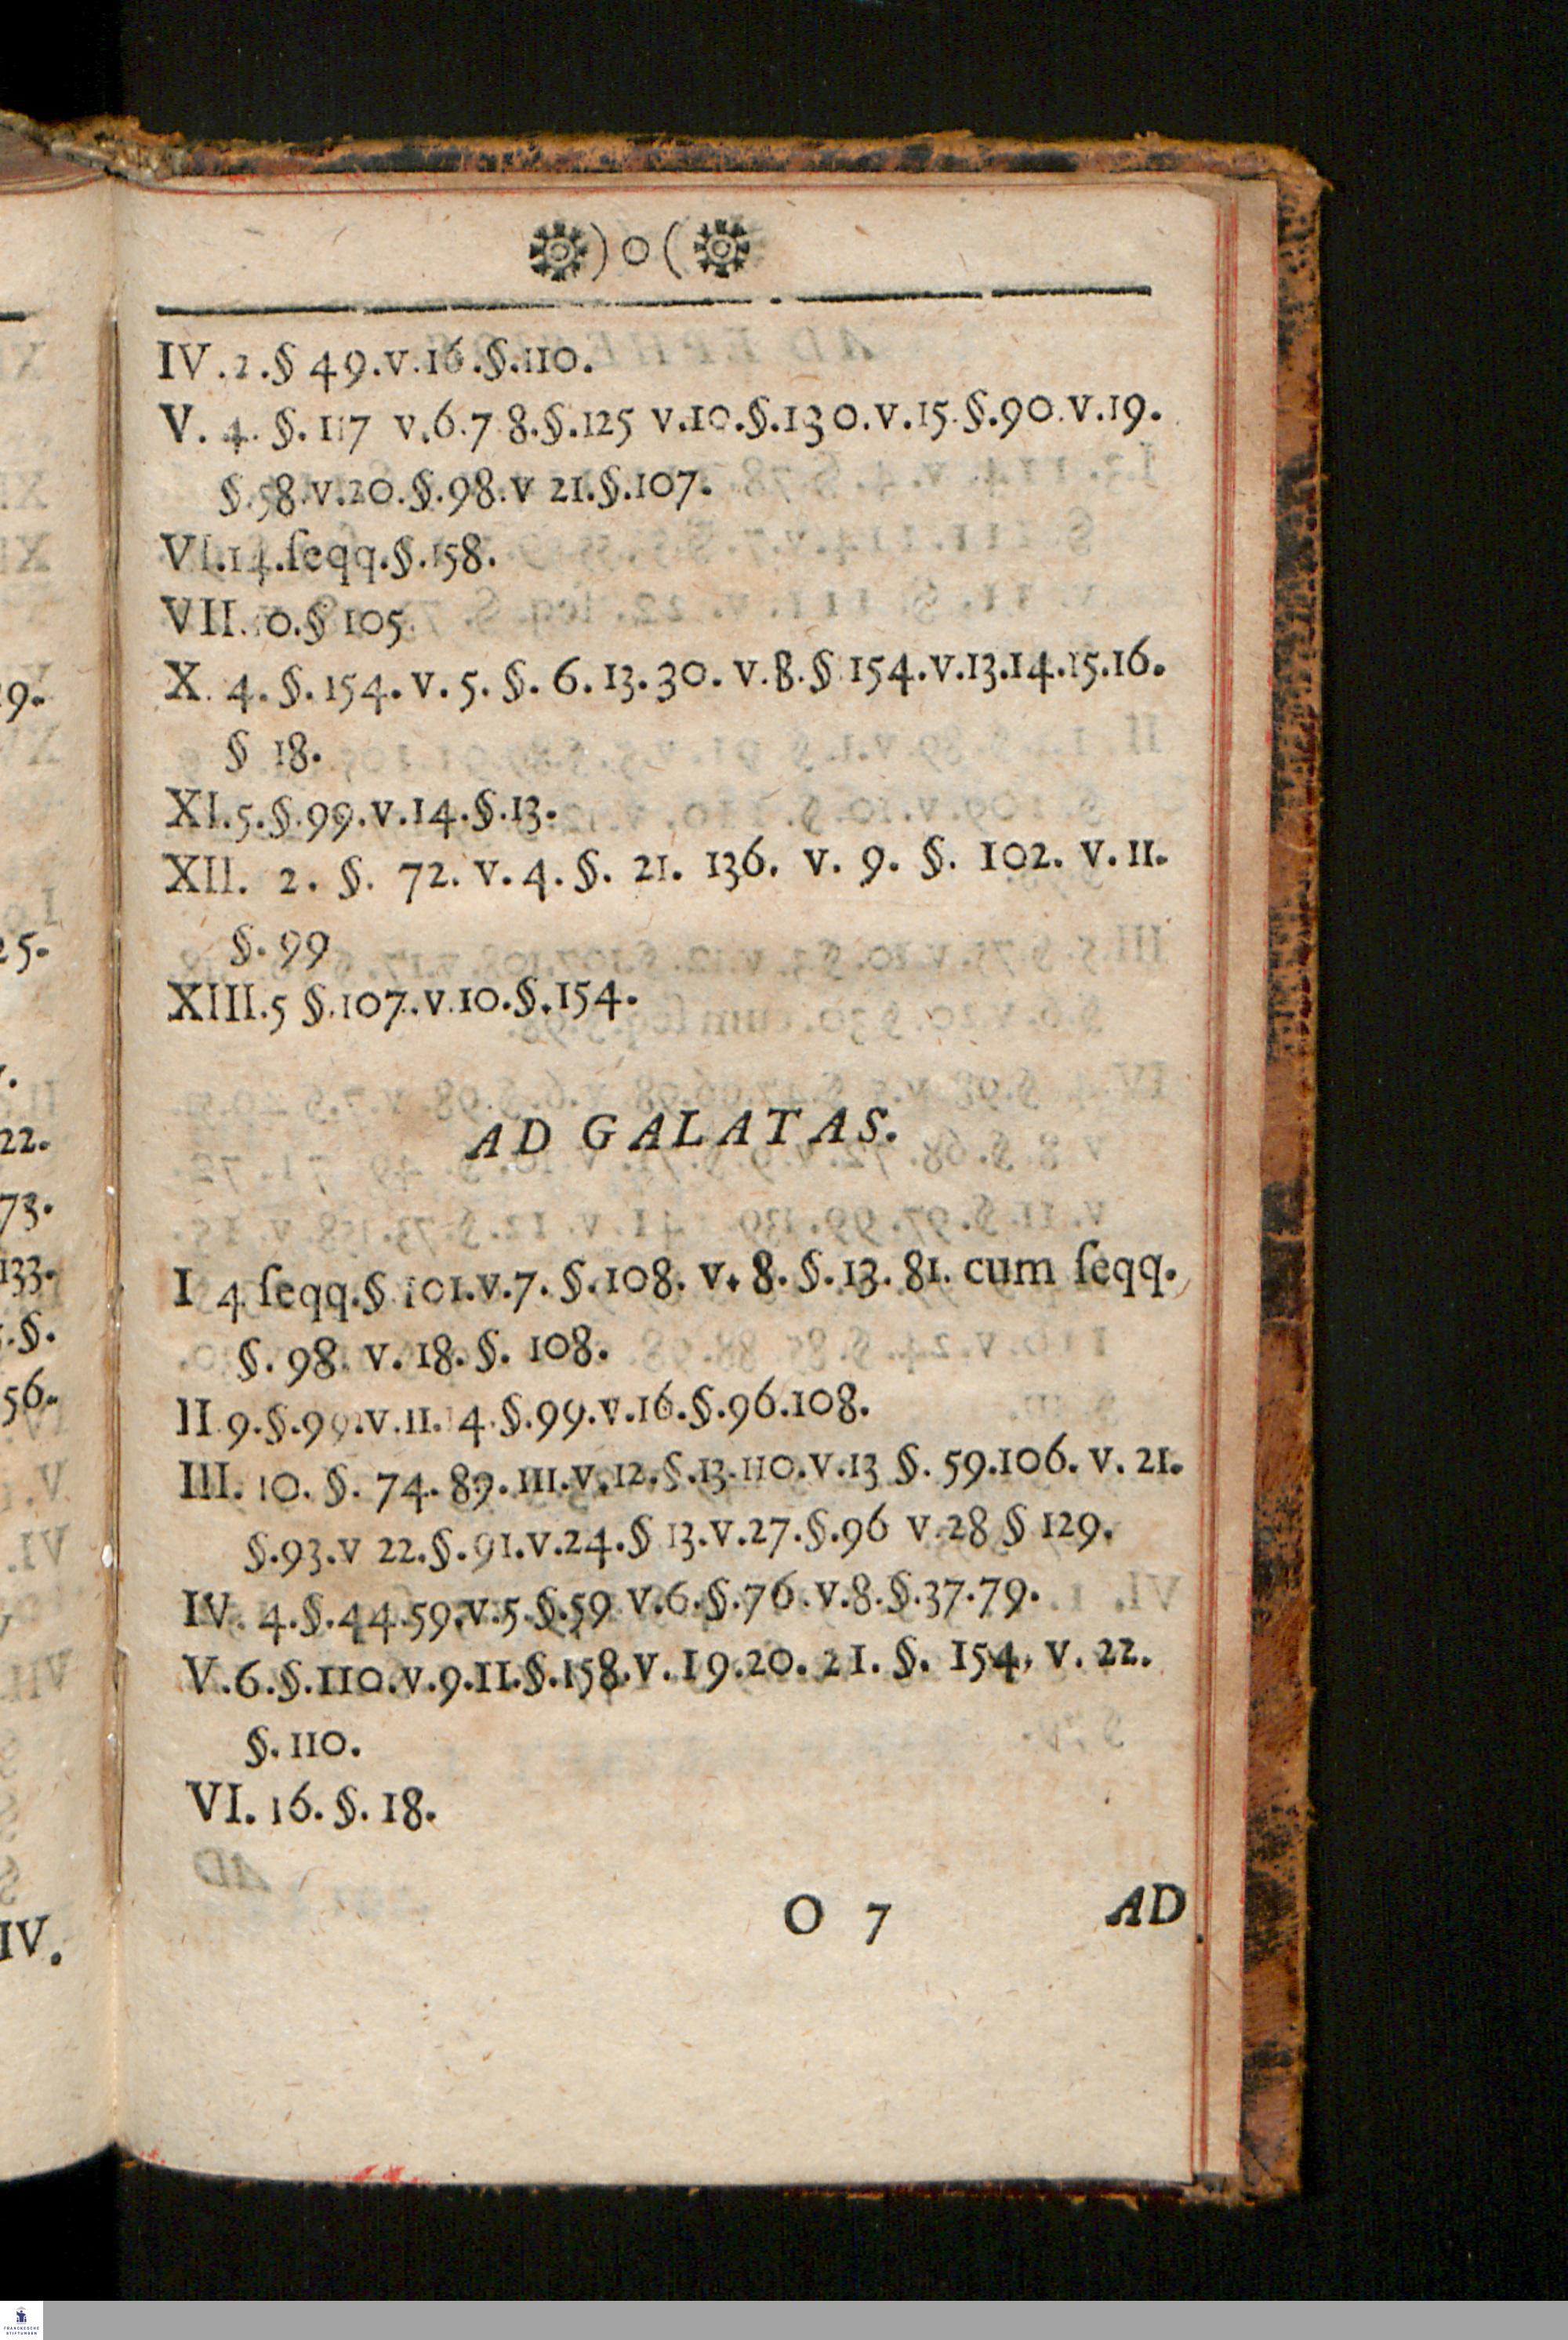 )o(
IV.2.§ 49.v.16.§.110.
V. 4. §. 117 v.6.7 8.§.125 v.10.§.130.v.15.§.90.v.19.
§.58.v.20.§.98.v 21.§.107.
VI.14.ſeqq.§.158.
VII.10.§ 105
X. 4. §. 154. v. 5. §. 6. 13. 30. v.8.§ 154.v.13.14.15.16.
§ 18.
XI.5.§.99.v.14.§.13.
XII. 2. §. 72. v. 4. §. 21. 136. v. 9. §. 102. v. 11.
§. 99
XIII.5 §.107.v.10.§.154.
AD GALATAS.
I 4 ſeqq.§ 101.v.7. §.108. v. 8. §. 13. 81. cum ſeqq.
§. 98. v. 18. §. 108.
II 9.§.99.v.11.14.§.99.v.16.§.96.108.
III. 10. §. 74. 89. 111.v.12.§.13.110.v.13 §. 59.106. v. 21.
§.93.v 22.§.91.v.24.§ 13.v.27.§.96 v.28 § 129.
IV. 4.§.44.59.v.5.§.59 v.6.§.76.v.8.§.37.79.
V.6.§.110.v.9.11.§.158.v.19.20. 21. §. 154, v. 22.
§. 110.
VI. 16. §. 18.
O 7 AD
19.
25.
v.
22.
73.
133.
.§.
56.
IV.
FRANCKESCHE
STIFTUNGEN